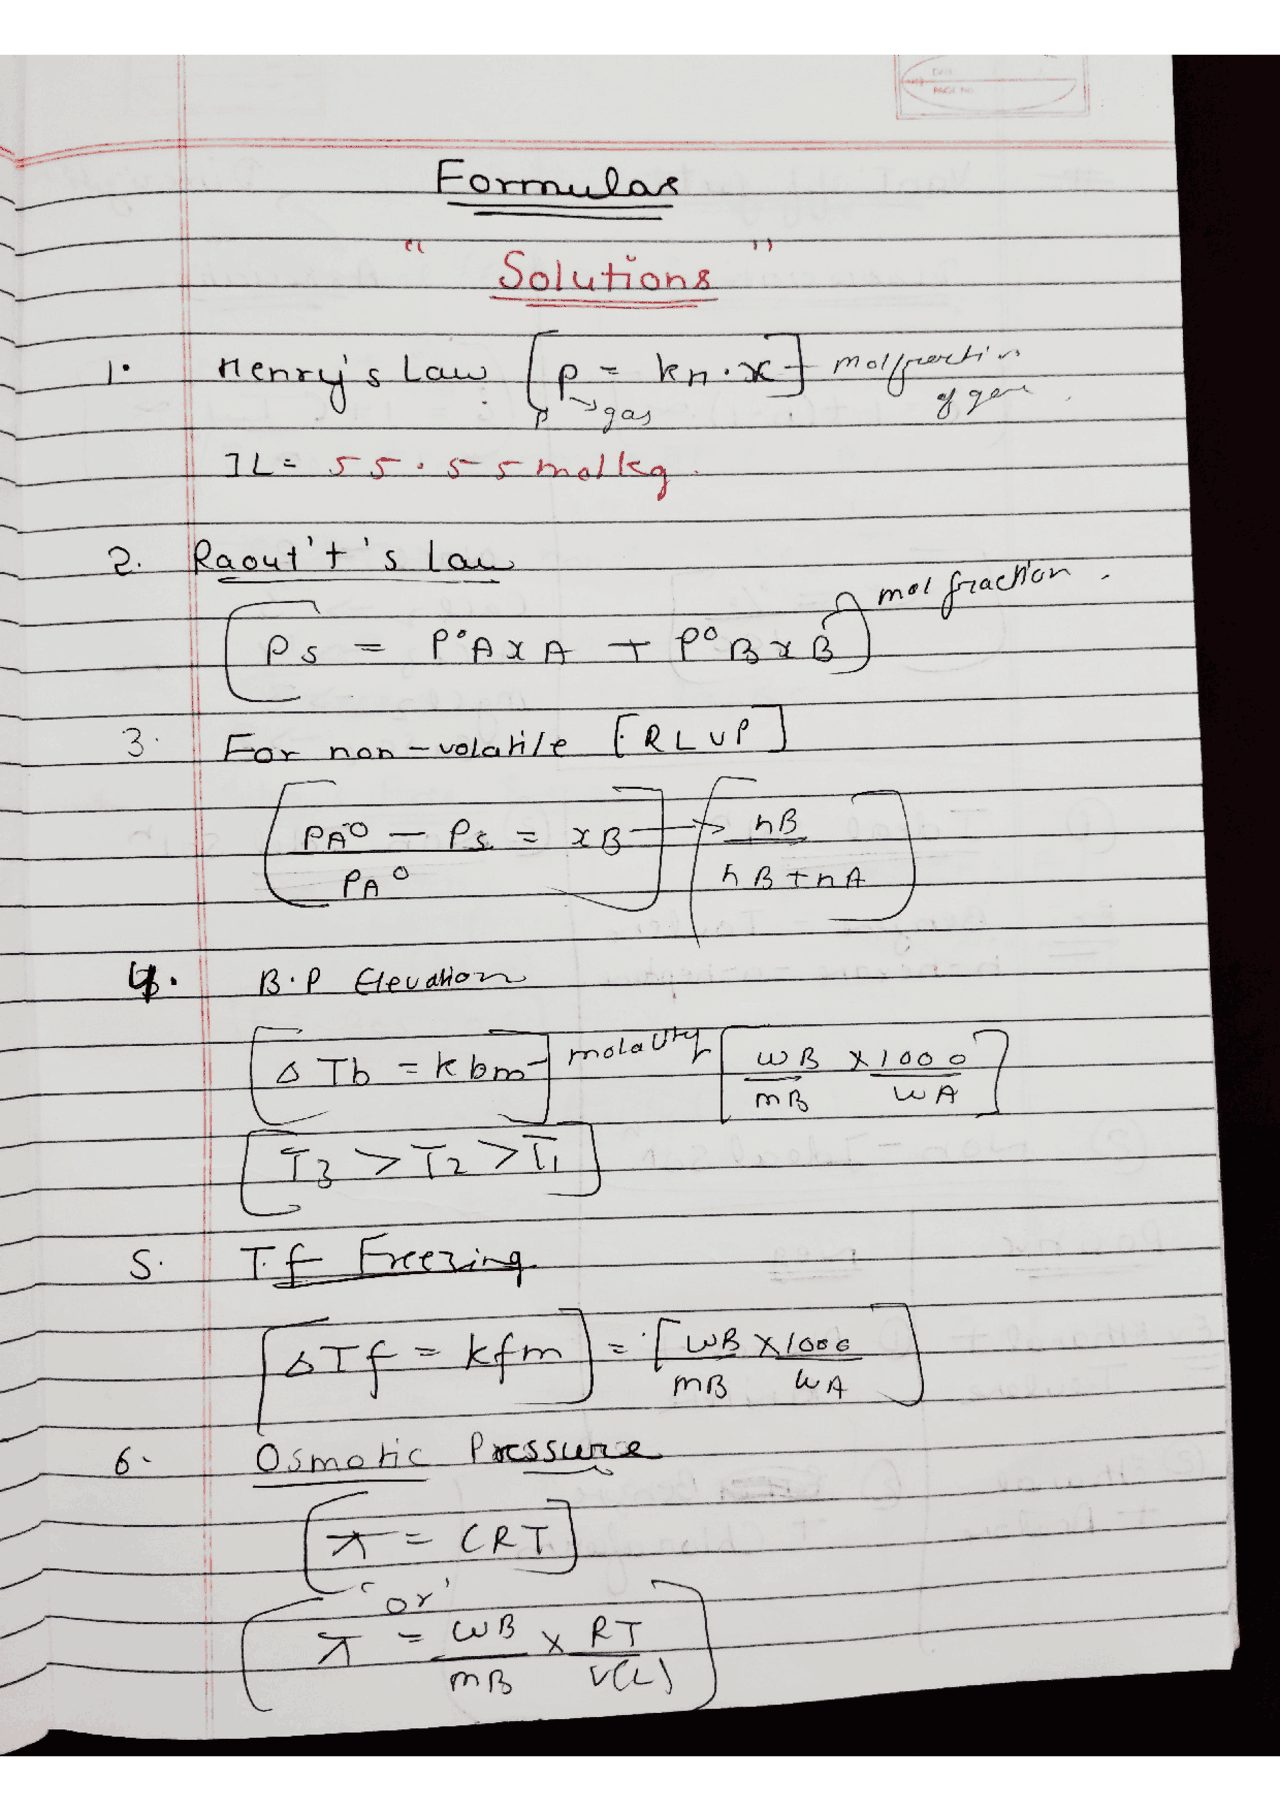 DATE
PAGE NO.
Formulas
" Solutions "
1. Henry's Law [p = kH.x] molfraction of gas
p → gas
1L = 55.55 mol kg.
2. Raout't's Law
[Ps = P°A x A + P°B x B] mol fraction.
3. For non-volatile [RLVP]
[PA° - Ps / PA° = xB] → [nB / nB + nA]
4. B.P Elevation
[ΔTb = kbm] molality [wB / mB × 1000 / wA]
[T3 > T2 > T1]
5. T.f Freezing
[ΔTf = kfm] = [wB / mB × 1000 / wA]
6. Osmotic Pressure
[π = CRT]
'or'
[π = wB / mB × RT / V(L)]